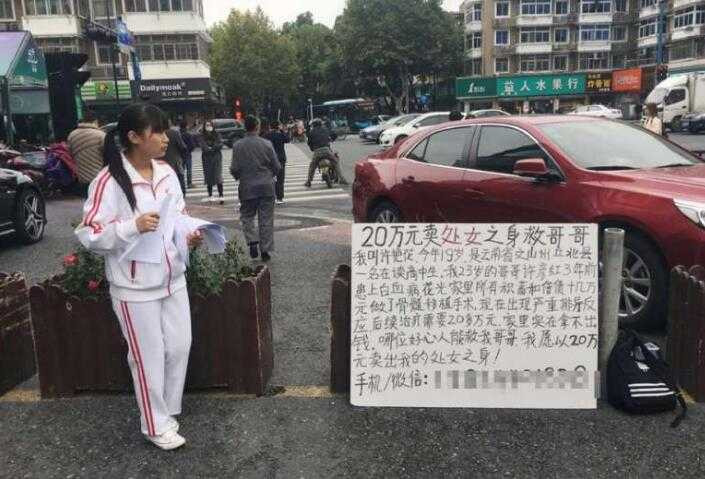 Dailymoak
人水果行
20万元卖处女之身救哥哥
我叫许艳花,今年19岁是云南省文山州丘北县
一名在读高中生,我23岁的哥哥许彦红3年前
患上白血病花光家里所有积蓄和借债十几万
元做了骨髓移植手术,现在出现严重排异反
应后续治疗需要20多万元,家里实在拿不出
钱,哪位好心人能救我哥哥,我愿以20万
元卖出我的处女之身!
手机/微信: